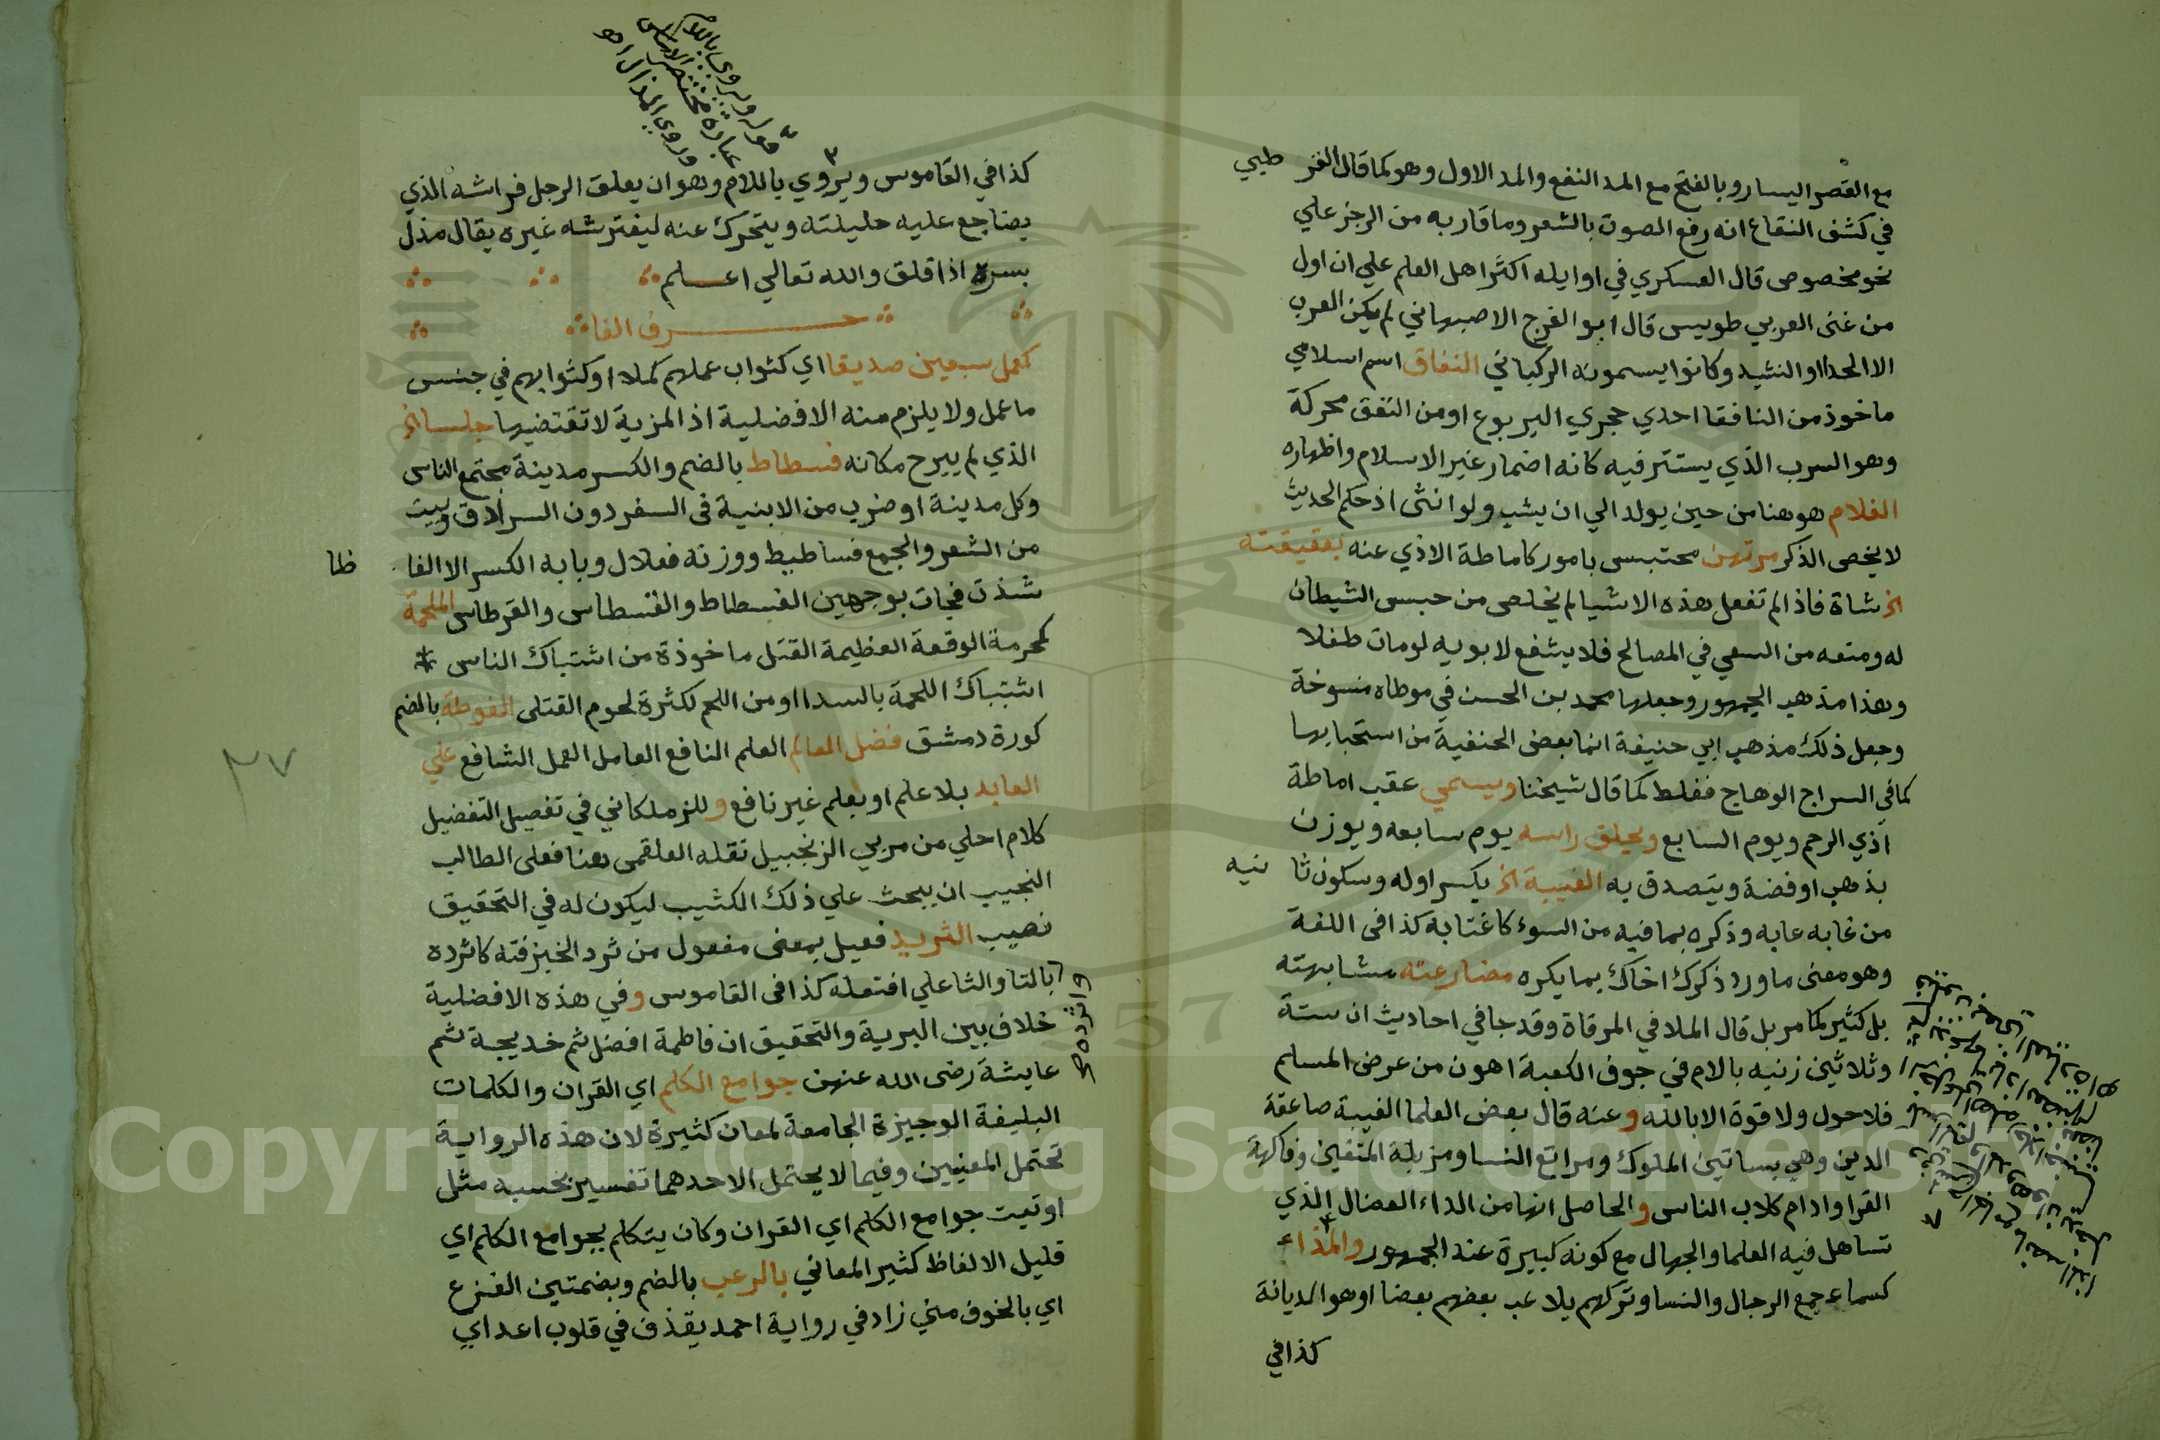 مع القصر اليسار وبالفتح مع المد النفع والمد الاول وهو كما قال القر طبي
في كشف القناع انه رفع الصوت بالشعر وما قاربه من الرجز علي
نحو مخصوص قال العسكري في اوايله اكثر اهل العلم علي ان اول
من غنى العربي طويس قال ابو الفرج الاصبهاني لم يكن العرب
الا الحدا او النشيد وكانوا يسمونه الركباني النفاق اسم اسلامي
ماخوذ من النافقا احدي حجري اليربوع او من النفق محركة
وهو السرب الذي يستتر فيه كانه اضمار غير الاسلام واظهاره
الغلام هو هنا من حين يولد الي ان يشب ولو انثى اذ حكم الحديث
لا يخص الذكر مرتهن محتبس بامور كاماطة الاذي عنه بعقيقته
الخ شاة فاذا لم تفعل هذه الاشيا لم يخلص من حبس الشيطان
له ومنعه من السعي في المصالح فلا يشفع لابويه لو مات طفلا
وهذا مذهب الجمهور وجعلها محمد بن الحسن في موطاه منسوخة
وجعل ذلك مذهب ابي حنيفة انما بعض الحنفية من استحبابها
كما في السراج الوهاج فغلط كما قال شيخنا ويسمي عقب اماطة
اذي الرحم ويوم السابع ويحلق راسه يوم سابعه ويوزن
بذهب او فضة ويتصدق به الغيبة الخ بكسر اوله وسكون ثا نيه
من غابه عابه وذكره بما فيه من السوء كاغتابه كذا في اللغة
وهو معنى ما ورد ذكرك اخاك بما يكره مضارعته مشابهته
بل كثير كما مر بل قال الملا في المرقاة وقد جا في احاديث ان ستة
وثلاثين زنيه بالام في جوف الكعبة اهون من عرض المسلم
فلا حول ولا قوة الا بالله وعنه قال بعض العلما الغيبة صاعقة
الدين وهي بساتين الملوك ومراتع النسا ومزبلة المتقين وفاكهة
القرا وادام كلاب الناس والحاصل انها من الداء العضال الذي
تساهل فيه العلما والجهال مع كونه كبيرة عند الجمهور والمذاء
كسماء جمع الرجال والنسا وتركهم يلاعب بعضهم بعضا او هو الديانة
كذا في
قوله ويروي باللام
عبارة مختصر الاساس
وروي المذال اه
كذا في القاموس ويروي باللام وهو ان يقلق الرجل فراشه الذي
يضاجع عليه حليلته ويتحرك عنه ليفترشه غيره يقال مذل
بسره اذا قلق والله تعالي اعلم
حرف الفا
كعمل سبعين صديقا اي كثواب عملهم كملا او كثوابهم في جنس
ما عمل ولا يلزم منه الافضلية اذ المزية لا تقتضيها جلسا الخ
الذي لم يبرح مكانه فسطاط بالضم والكسر مدينة مجتمع الناس
وكل مدينة او ضرب من الابنية في السفر دون السرادق وبيت
من الشعر والجمع فساطيط ووزنه فعلال وبابه الكسر الا الفا ظا
شذت فجات بوجهين الفسطاط والقسطاس والقرطاس الملحمة
كمحرمة الوقعة العظيمة القتل ماخوذة من اشتباك الناس *
اشتباك اللحمة بالسدا او من اللحم لكثرة لحوم القتلى الغوطة بالضم
كورة دمشق فضل العالم العلم النافع العامل العمل الشافع علي
العابد بلا علم او بعلم غير نافع وللزملكاني في تفصيل التفضيل
كلام احلي من مربي الزنجبيل نقله العلقمي هنا فعلى الطالب
النجيب ان يبحث علي ذلك الكثيب ليكون له في التحقيق
نصيب الثريد فعيل بمعنى مفعول من ثرد الخبز فته كاثرده
واثرده صح
بالتا والثا علي افتعله كذا في القاموس وفي هذه الافضلية
خلاف بين البرية والتحقيق ان فاطمة افضل ثم خديجة ثم
عايشة رضي الله عنهن جوامع الكلم اي القران والكلمات
البليغة الوجيزة الجامعة لمعان كثيرة لان هذه الرواية
تحتمل المعنيين وفيما لا يحتمل الا احدهما تفسير بحسبه مثل
اوتيت جوامع الكلم اي القران وكان يتكلم بجوامع الكلم اي
قليل الالفاظ كثير المعاني بالرعب بالضم وبضمتين الفزع
اي بالخوف مني زاد في رواية احمد يقذف في قلوب اعداي
٢٧
Copyright © King Saud University
1957